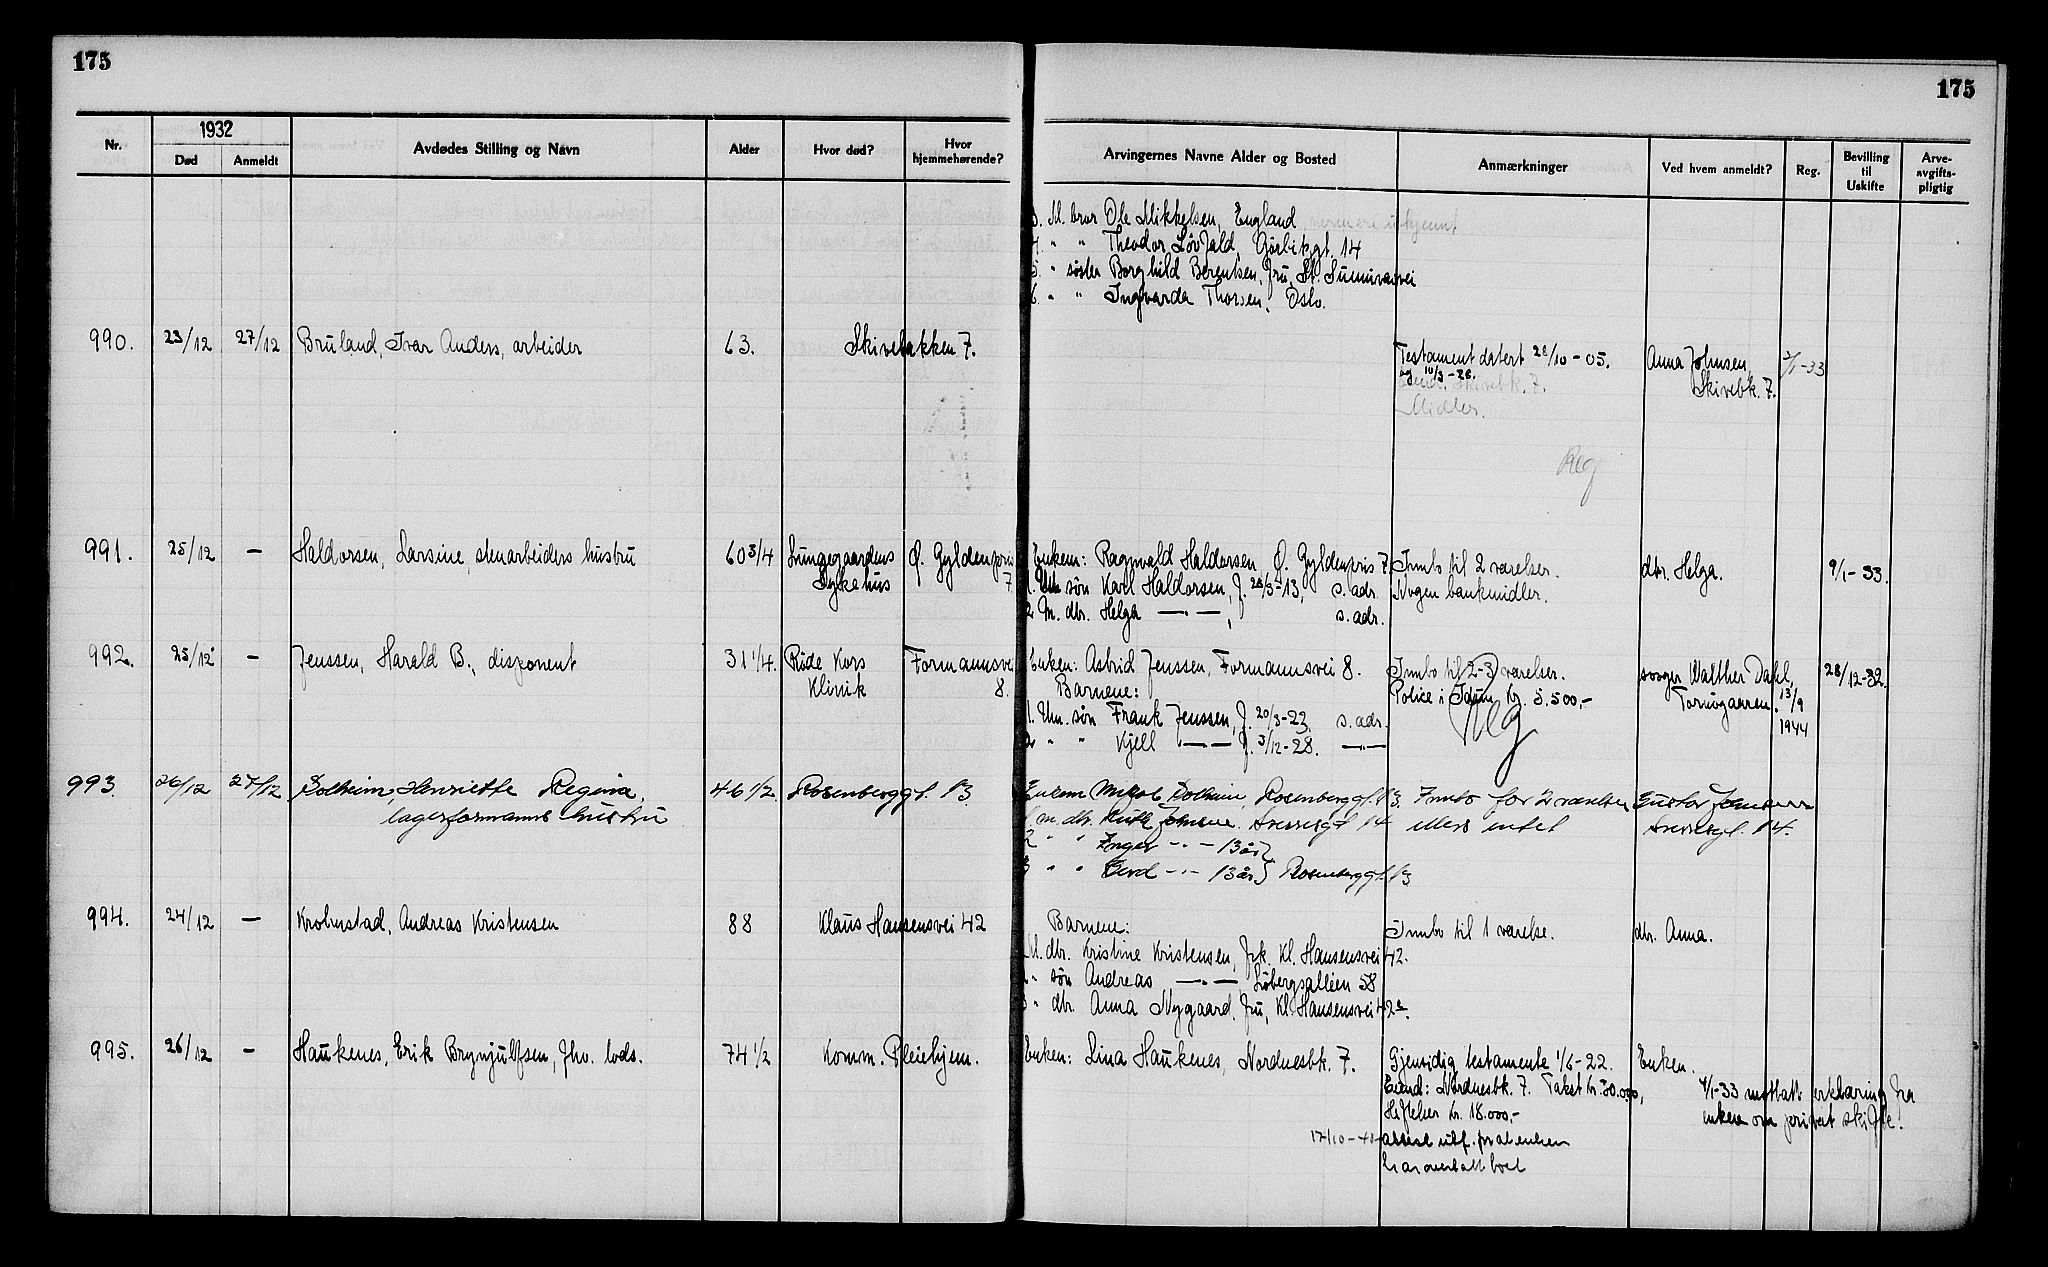 175
175
Nr.
1932
Død
Anmeldt
Avdødes Stilling og Navn
Alder
Hvor død?
Hvor hjemmehørende?
Arvingernes Navne Alder og Bosted
Anmærkninger
Ved hvem anmeldt?
Reg.
Bevilling til Uskifte
Arve-avgifts-pligtig
3. M. bror Ole Mikkelsen, England
4. " " Theodor Løvfald,
5. " søster Borghild Berentsen, fru, St. Sunnivasvei
6. " " Ingvarda Thorsen, Oslo.
990. 23/12 27/12 Bruland, Ivar Anders, arbeider 63. Skivebakken 7.
Testament datert 28/10-05. Anna Johnsen, 2/1-33
og 10/3-28. Skivebk. 7.
Skivebk. 7.
Midler.
Reg
991. 25/12 — Haldorsen, Larsine, stenarbeiders hustru 60 3/4 Lungegaardens Ø. Gyldenpris Enkem: Ragnvald Haldorsen, Ø. Gyldenpris 7 Innbo til 2 værelser. dtr. Helga. 9/1-33.
Sykehus 7 1. Um. søn Karl Haldorsen, f. 28/3-13, s. adr. Nogen bankmidler.
2 M. dtr. Helga —"— , s. adr.
992. 25/12 — Jenssen, Harald B., disponent 31 1/4. Røde Kors Formannsvei Enken: Astrid Jenssen, Formannsvei 8. Innbo til 2-3 værelser. sorger Walther Dahl, 28/12-32.
Klinik 8. Barnene: Police i Idun kr. 5.500,- Torvgaarden. 13/9
1. Um. søn Frank Jenssen, f. 20/3-23, s. adr. 1944
2 " " Kjell —"— f. 3/12-28. —"—
Reg
993 26/12 27/12 Solheim, Henriette Regina, 46 1/2 Rosenberggt. 13 Enkem Mikal Solheim Rosenberggt. 13. Innbo for 2 værelser Gustav Johnsen
lagerformanns hustru 1 m. dtr. Ruth Johnsen. Sverresgt 14 ellers intet Sverresgt. 14.
2 " " Inger -"- 13 år
3 " " Gerd -"- 13 år } Rosenberggt. 13
994. 24/12 — Krohnstad, Andreas Kristensen 88 Klaus Hansensvei 42 Barnene: Innbo til 1 værelse. dtr. Anna.
1 M. dtr. Kristine Kristensen, frk. Kl. Hansensvei 42.
2 " søn Andreas —"— Løbergsalleen 58
3 " dtr. Anna Nygaard, fru, Kl. Hansensvei 42
995. 26/12 — Haukenes, Erik Brynjulfsen, fhv. lods. 74 1/2 Komm. Pleiehjem. Enken: Lina Haukenes, Nordnesbk. 7. Gjensidig testamente 1/6-22. Enken.
Eiend: Nordnesbk. 7. Takst kr. 30.000, 4/1-33 mottatt erklæring fra
Heftelser kr. 18.000,- enken om privat skifte!
17/10-40 attest utf. på at enken
har overtatt boet